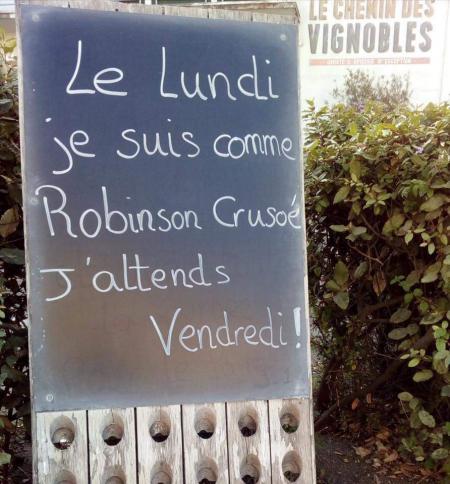 LE CHENIN DES
VIGNOBLES
Le Lundi
je suis comme
Robinson Crusoé
J'attends
Vendredi !